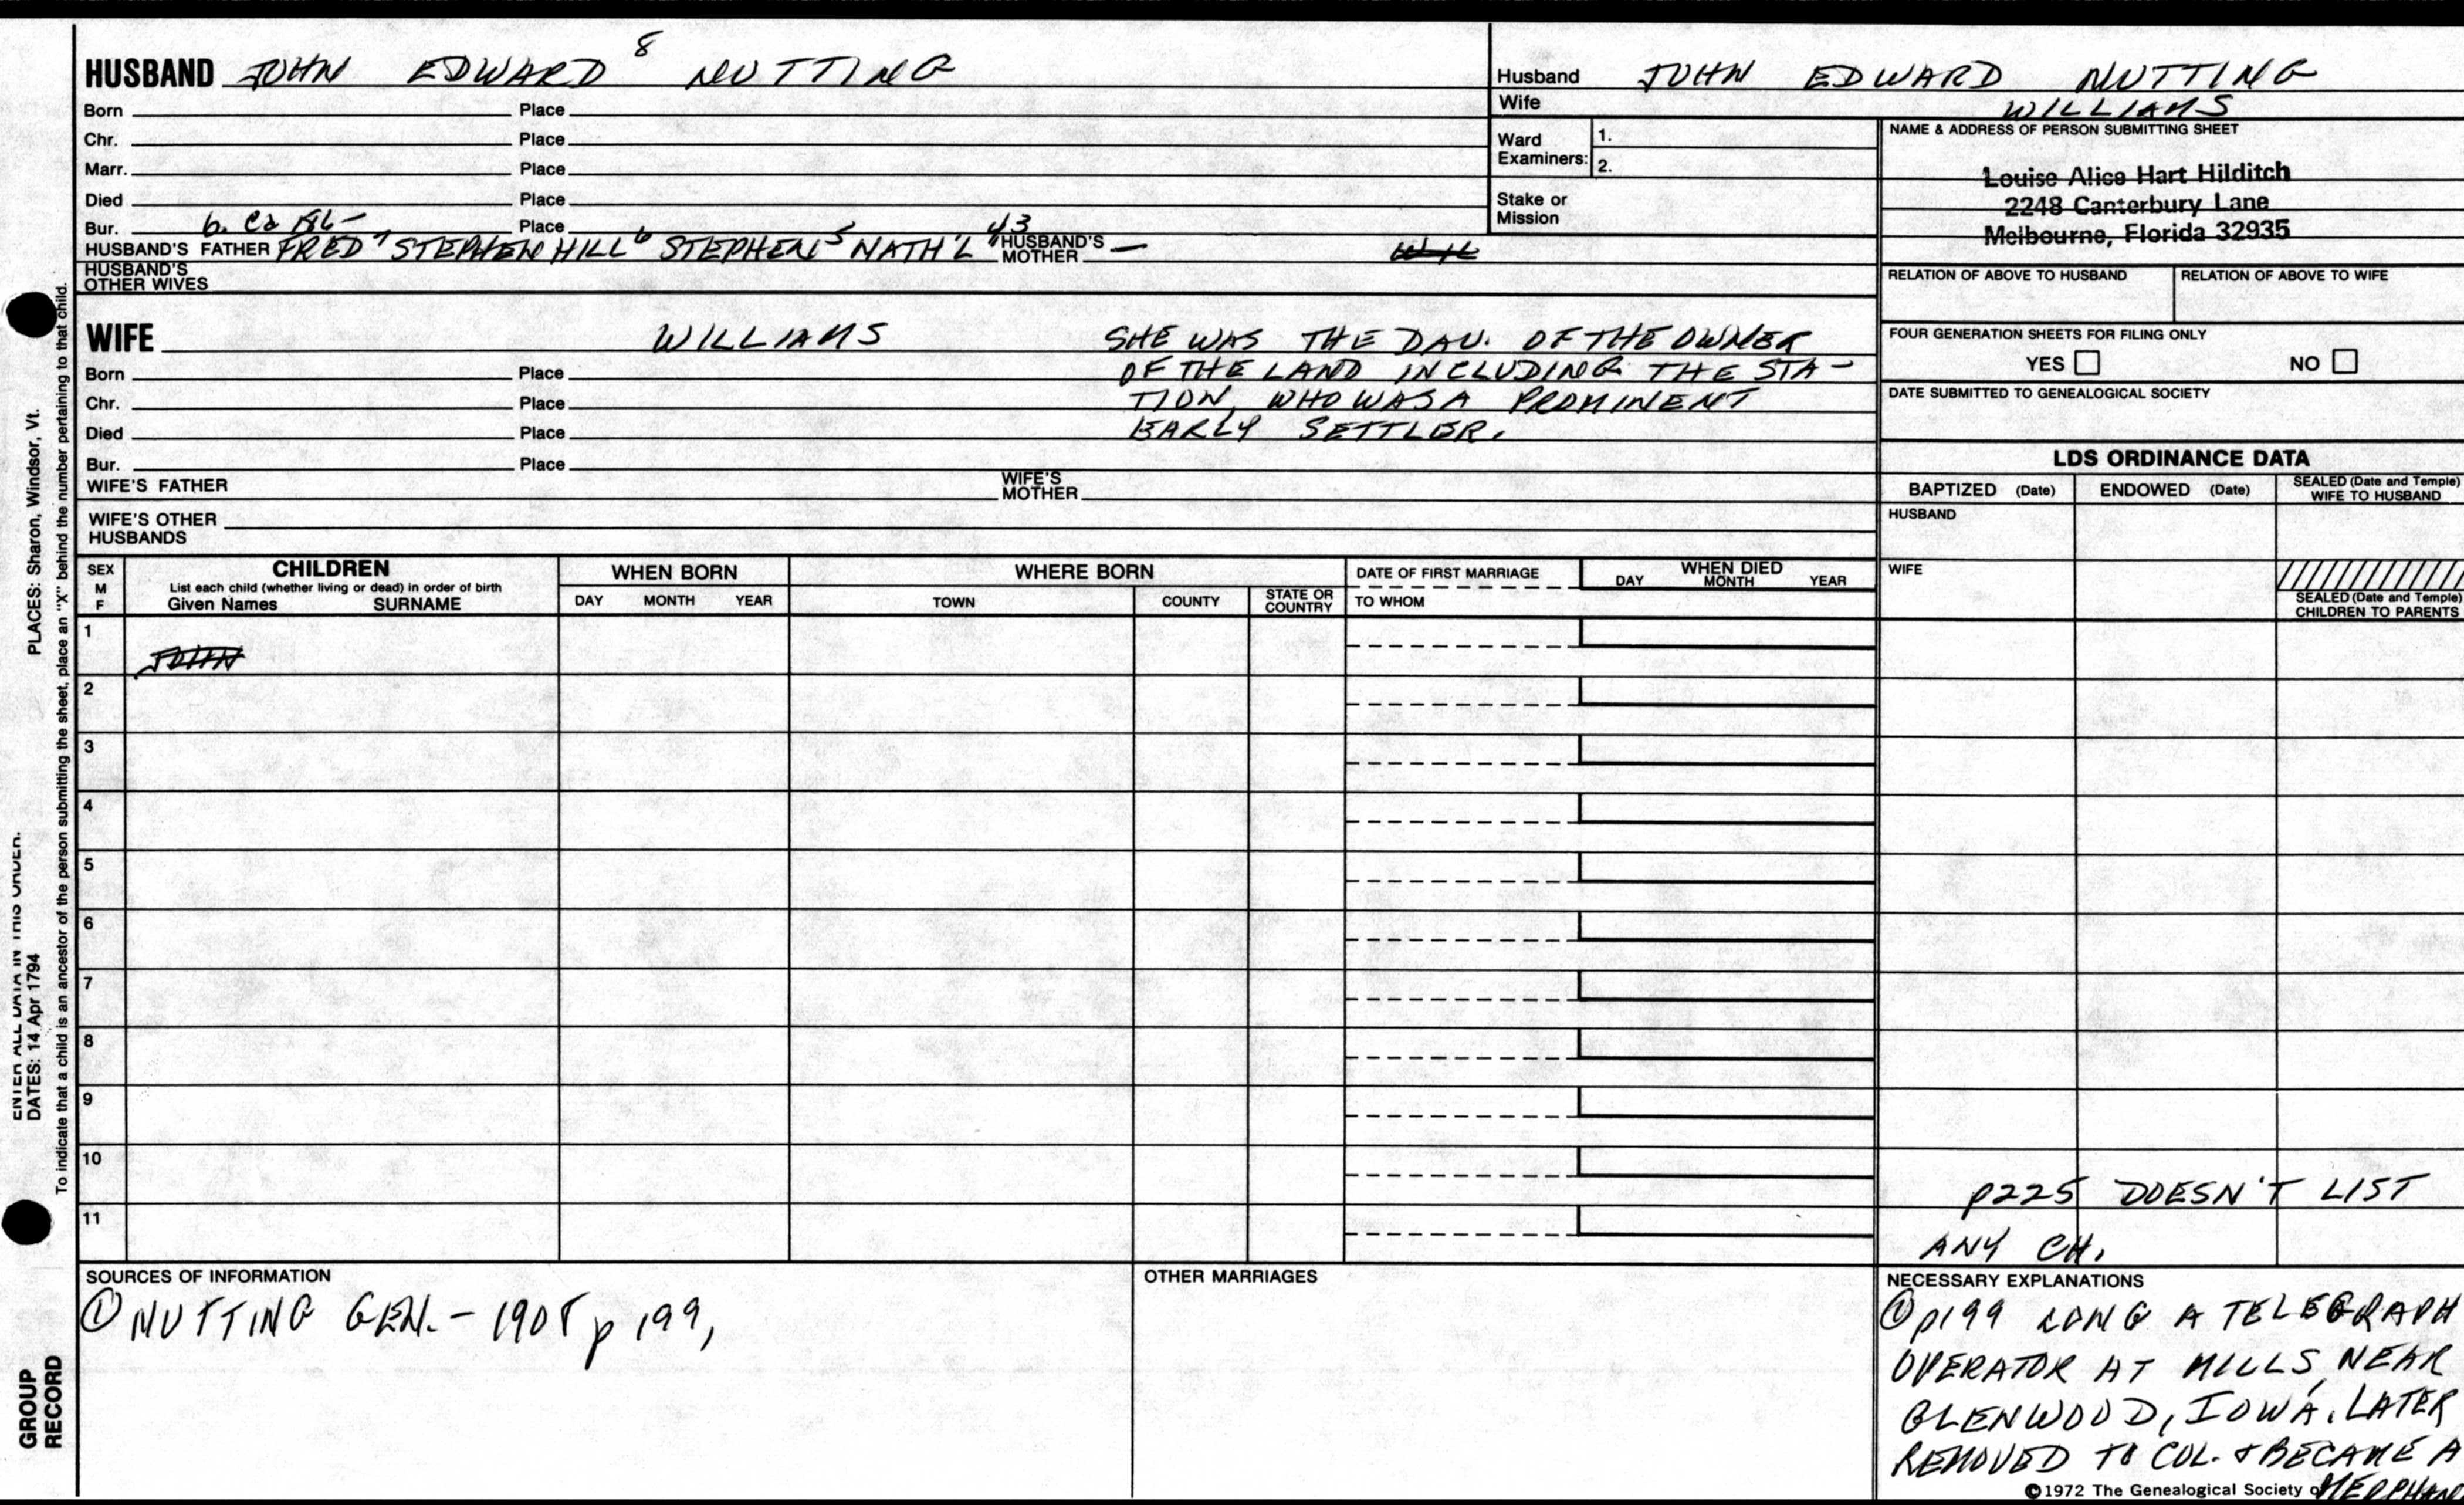 HUSBAND JOHN EDWARD 8 NUTTING
Born Place
Chr. Place
Marr. Place
Died Place
Bur. b. ca Place
HUSBAND'S FATHER FRED 7 STEPHEN HILL 6 STEPHEN 5 NATH'L 43 HUSBAND'S MOTHER —
HUSBAND'S OTHER WIVES
Husband JOHN EDWARD NUTTING
Wife WILLIAMS
Ward Examiners: 1.
2.
Stake or Mission
NAME & ADDRESS OF PERSON SUBMITTING SHEET
Louise Alice Hart Hilditch
2248 Canterbury Lane
Melbourne, Florida 32935
RELATION OF ABOVE TO HUSBAND RELATION OF ABOVE TO WIFE
FOUR GENERATION SHEETS FOR FILING ONLY
YES NO
DATE SUBMITTED TO GENEALOGICAL SOCIETY
WIFE WILLIAMS
Born Place
Chr. Place
Died Place
Bur. Place
WIFE'S FATHER WIFE'S MOTHER
WIFE'S OTHER HUSBANDS
SHE WAS THE DAU. OF THE OWNER
OF THE LAND INCLUDING THE STA-
TION, WHO WAS A PROMINENT
EARLY SETTLER.
LDS ORDINANCE DATA
BAPTIZED (Date) ENDOWED (Date) SEALED (Date and Temple) WIFE TO HUSBAND
HUSBAND
WIFE
SEALED (Date and Temple) CHILDREN TO PARENTS
SEX M F
CHILDREN
List each child (whether living or dead) in order of birth
Given Names SURNAME
WHEN BORN
DAY MONTH YEAR
WHERE BORN
TOWN COUNTY STATE OR COUNTRY
DATE OF FIRST MARRIAGE
TO WHOM
WHEN DIED
DAY MONTH YEAR
1
JOHN
2
3
4
5
6
7
8
9
10
11
p225 DOESN'T LIST
ANY CH.
SOURCES OF INFORMATION
① NUTTING GEN.- 1908 p 199,
OTHER MARRIAGES
NECESSARY EXPLANATIONS
① p199 LONG A TELEGRAPH
OPERATOR AT HILLS, NEAR
GLENWOOD, IOWA. LATER
REMOVED TO COL. & BECAME A
©1972 The Genealogical Society
ENTER ALL DATA IN THIS ORDER.
DATES: 14 Apr 1794 PLACES: Sharon, Windsor, Vt.
To indicate that a child is an ancestor of the person submitting the sheet, place an "X" behind the number pertaining to that child.
GROUP
RECORD